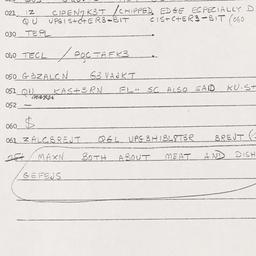 021 IZ CIPEN7K3T / CHIPPED EDGE ESPECIALLY D
QU UPSIS+C+ER3-BIT CIS+C+ER3-BIT (060
030 TEPL
050 TECL / POCTAFK3
050 GBZALCN G3VAJKT
051 QU KAS+3RN FL-- SC ALSO SAID KU.ST
052 -
060 $
061 ZALCBREJT Q&L UPS3HIBL8TER BREJT
MAXN BOTH ABOUT MEAT AND DISH
GEFEJS